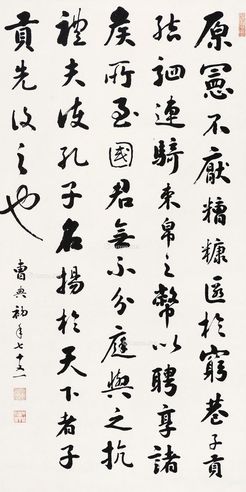 原憲不厭糟糠匿於窮巷子貢
結駟連騎束帛之幣以聘享諸
侯所至國君無不分庭與之抗
禮夫使孔子名揚於天下者子
貢先後之也
曹典初年七十又一